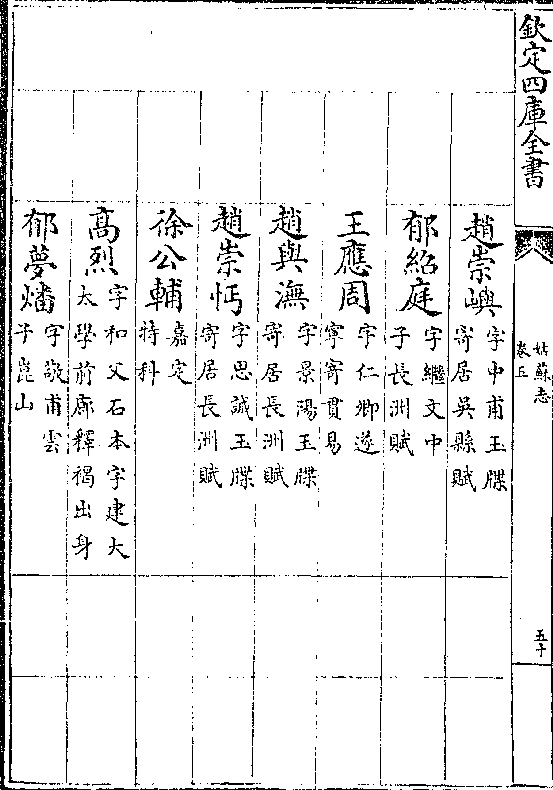 欽定四庫全書
姑蘇志
卷五
五十
趙崇嶼 字中甫玉牒
寄居吳縣賦
郁紹庭 字繼文中
子長洲賦
王應周 字仁卿遂
寧寄貫易
趙與潕 字景陽玉牒
寄居長洲賦
趙崇㤉 字思誠玉牒
寄居長洲賦
徐公輔 嘉定
特科
高烈 字和父石本字建大
太學前廊釋褐出身
郁夢燔 字敬甫雲
子崑山